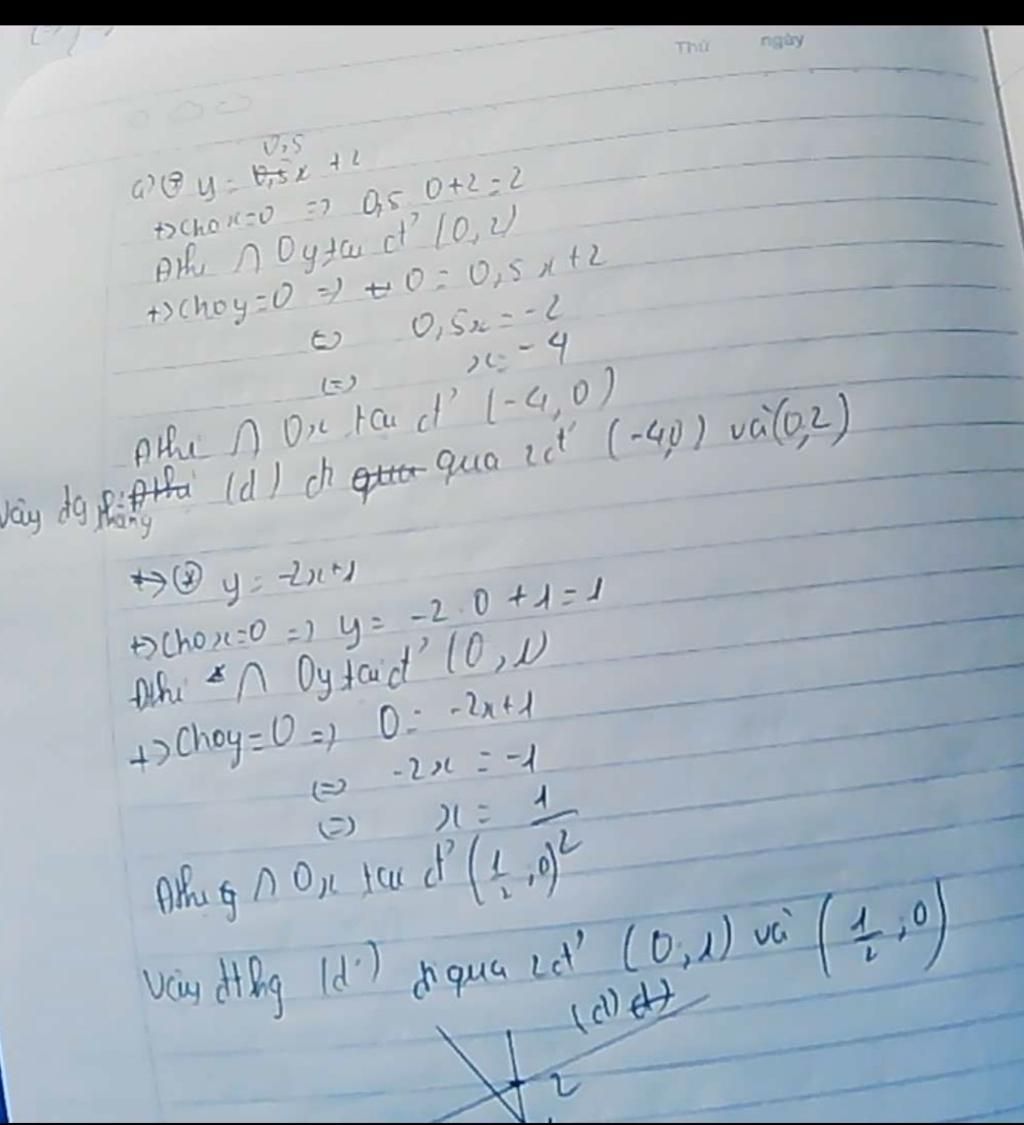 Thứ ngày
0,5
a) (*) y = 0,5x + 2
+) Cho x=0 => 0,5 . 0+2=2
Đthị ∩ Oy tại đ' (0,2)
+) Cho y=0 => 0 = 0,5x+2
<=> 0,5x = -2
<=> x = -4
Đthị ∩ Ox tại đ' (-4,0)
Vậy đg thẳng (d) đi qua 2đ' (-4,0) và (0,2)
(*) y = -2x+1
+) Cho x=0 => y = -2.0 +1=1
Đthị ∩ Oy tại đ' (0,1)
+) Cho y=0 => 0 = -2x+1
<=> -2x = -1
<=> x = 1/2
Đthị ∩ Ox tại đ' (1/2, 0)
Vậy đthg (d') đi qua 2đ' (0;1) và (1/2;0)
(d)
2